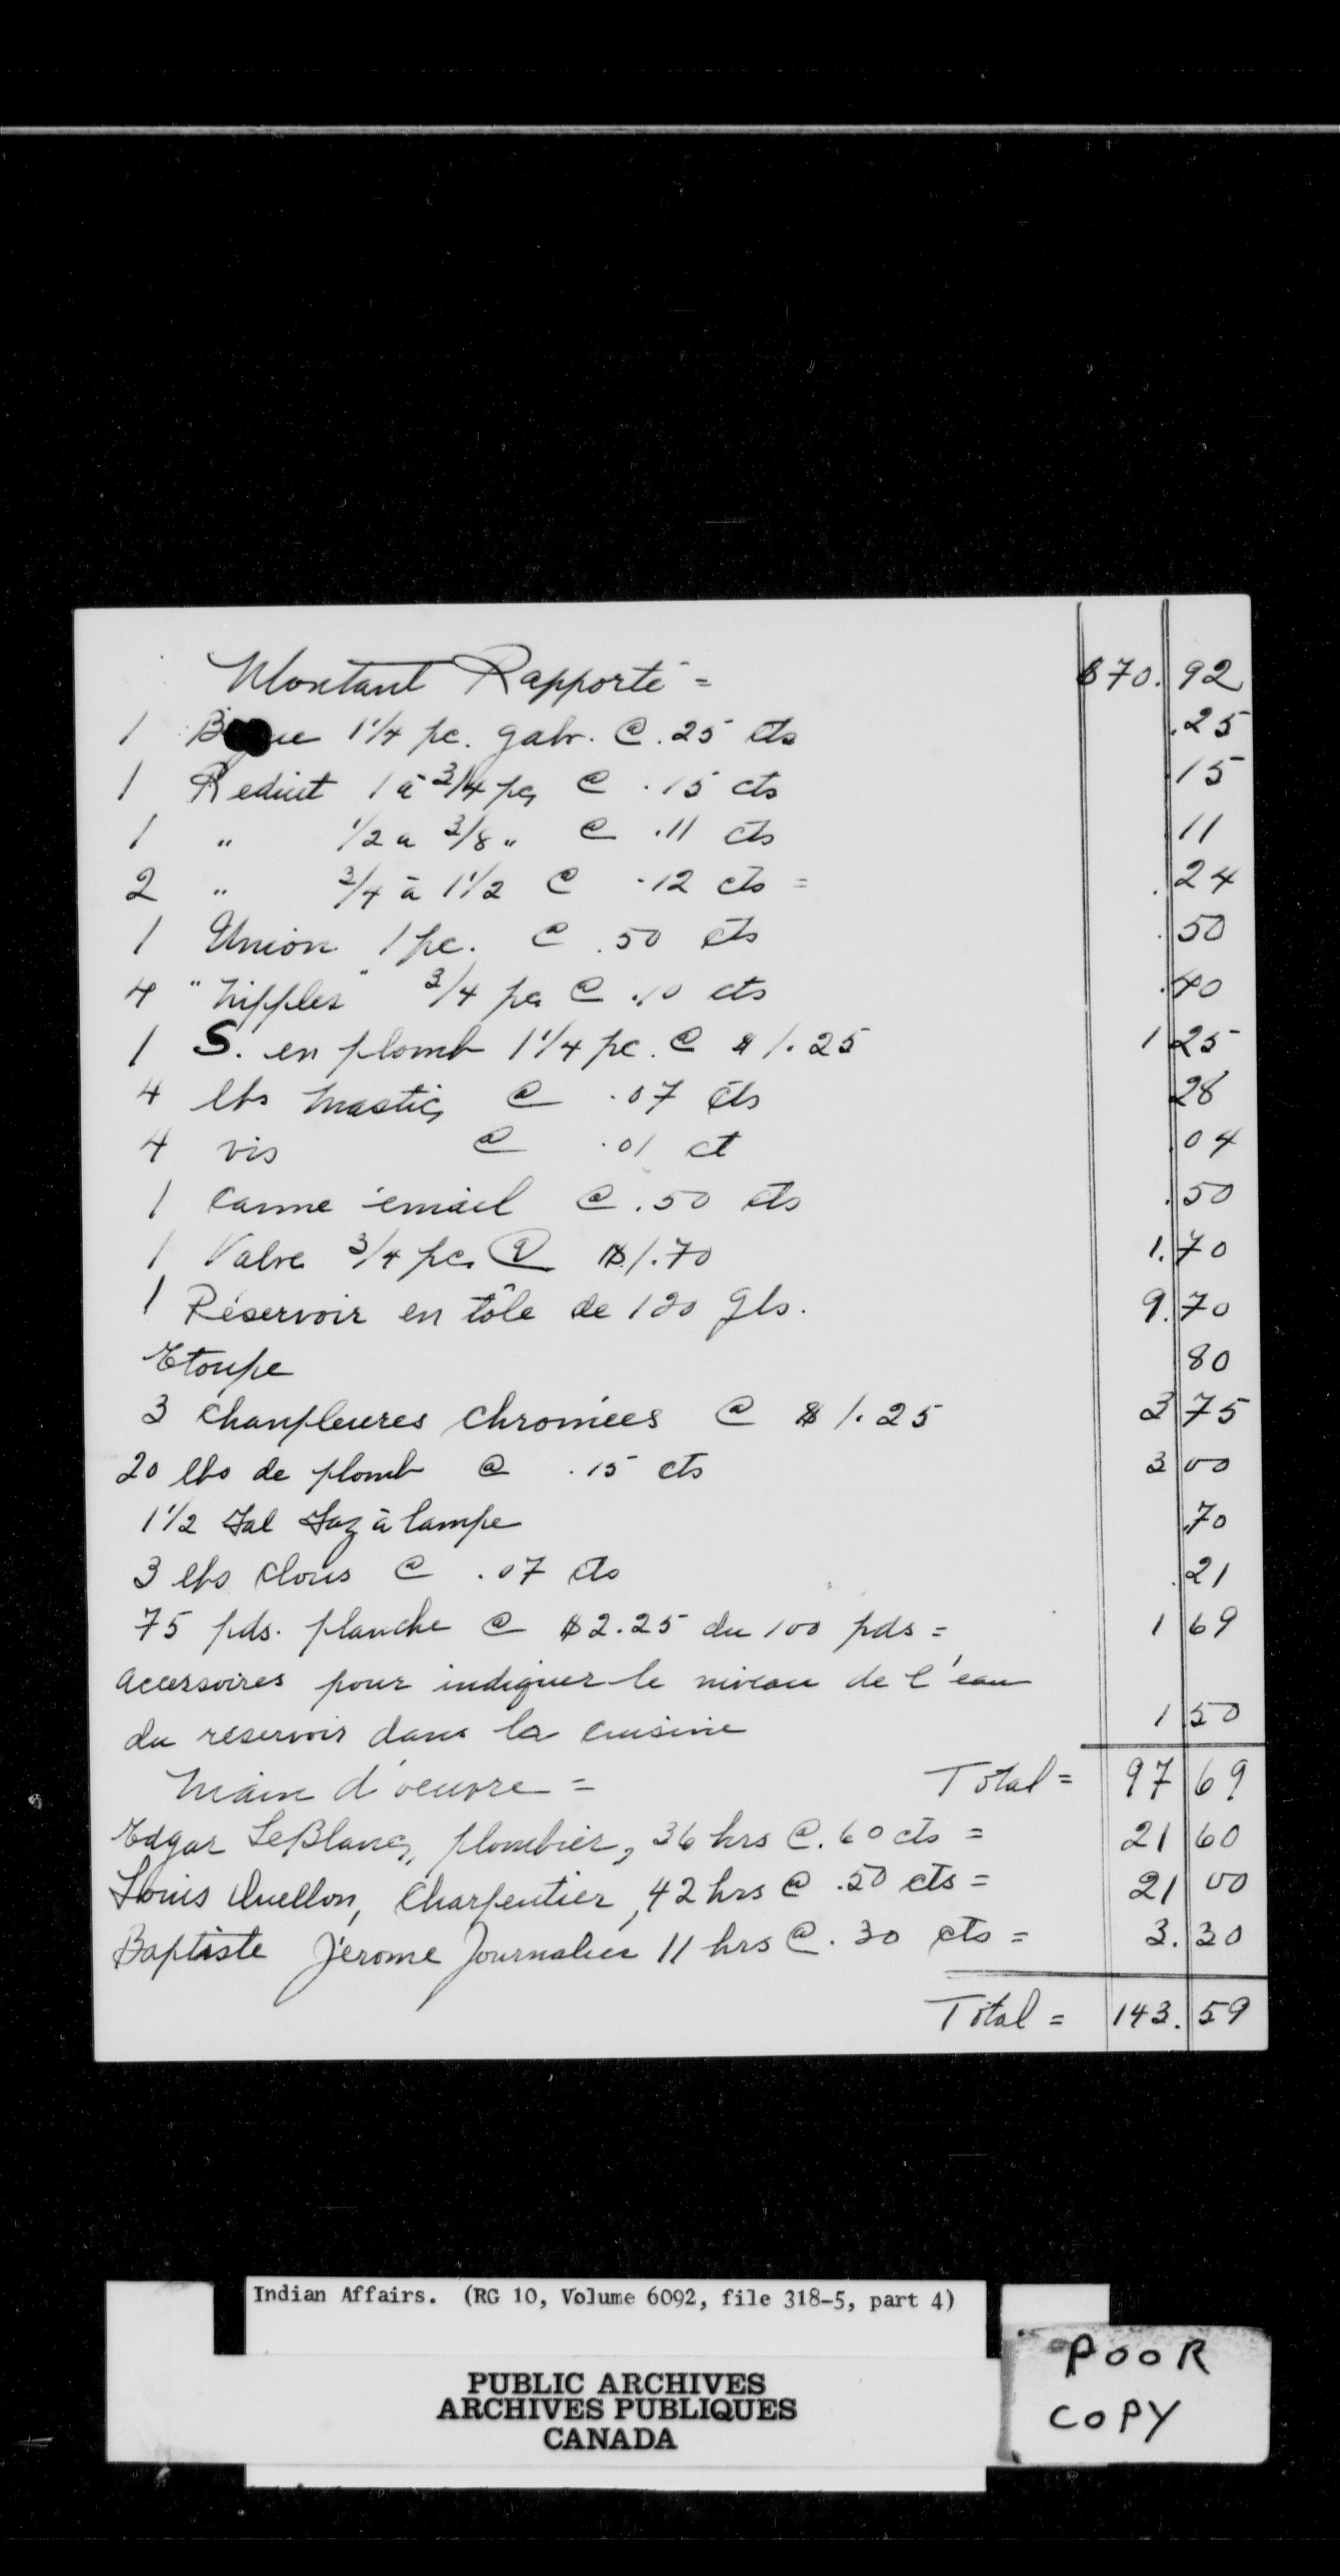 Montant Rapporté = $70.92
1 1 1/4 pc. galv. @ .25 cts .25
1 Reduit 1 à 3/4 pc @ .15 cts .15
1 " 1/2 a 3/8 " @ .11 cts .11
2 " 3/4 à 1 1/2 @ .12 cts = .24
1 Union 1 pc. @ .50 cts .50
4 "nipples" 3/4 pc @ .10 cts .40
1 S. en plomb 1 1/4 pc. @ $1.25 1 25
4 lbs mastic @ .07 cts 28
4 vis @ .01 ct .04
1 Canne émail @ .50 cts .50
1 Valve 3/4 pc. @ $1.70 1.70
1 Réservoir en tôle de 120 gls. 9.70
Etoupe 80
3 Chanpleures chromées @ $1.25 3 75
20 lbs de plomb @ .15 cts 3 00
1 1/2 Gal Gaz à lampe .70
3 lbs clous @ .07 cts .21
75 pds. planche @ $2.25 du 100 pds = 1 69
accessoires pour indiquer le niveau de l'eau
du reservoir dans la cuisine 1.50
Main d'oeuvre = Total = 97 69
Edgar LeBlanc, plombier, 36 hrs @ .60 cts = 21 60
Louis Quellon, Charpentier, 42 hrs @ .50 cts = 21 00
Baptiste Jérome Journalier 11 hrs @ .30 cts = 3.30
Total = 143.59
Indian Affairs. (RG 10, Volume 6092, file 318-5, part 4)
PUBLIC ARCHIVES
ARCHIVES PUBLIQUES
CANADA
POOR
COPY